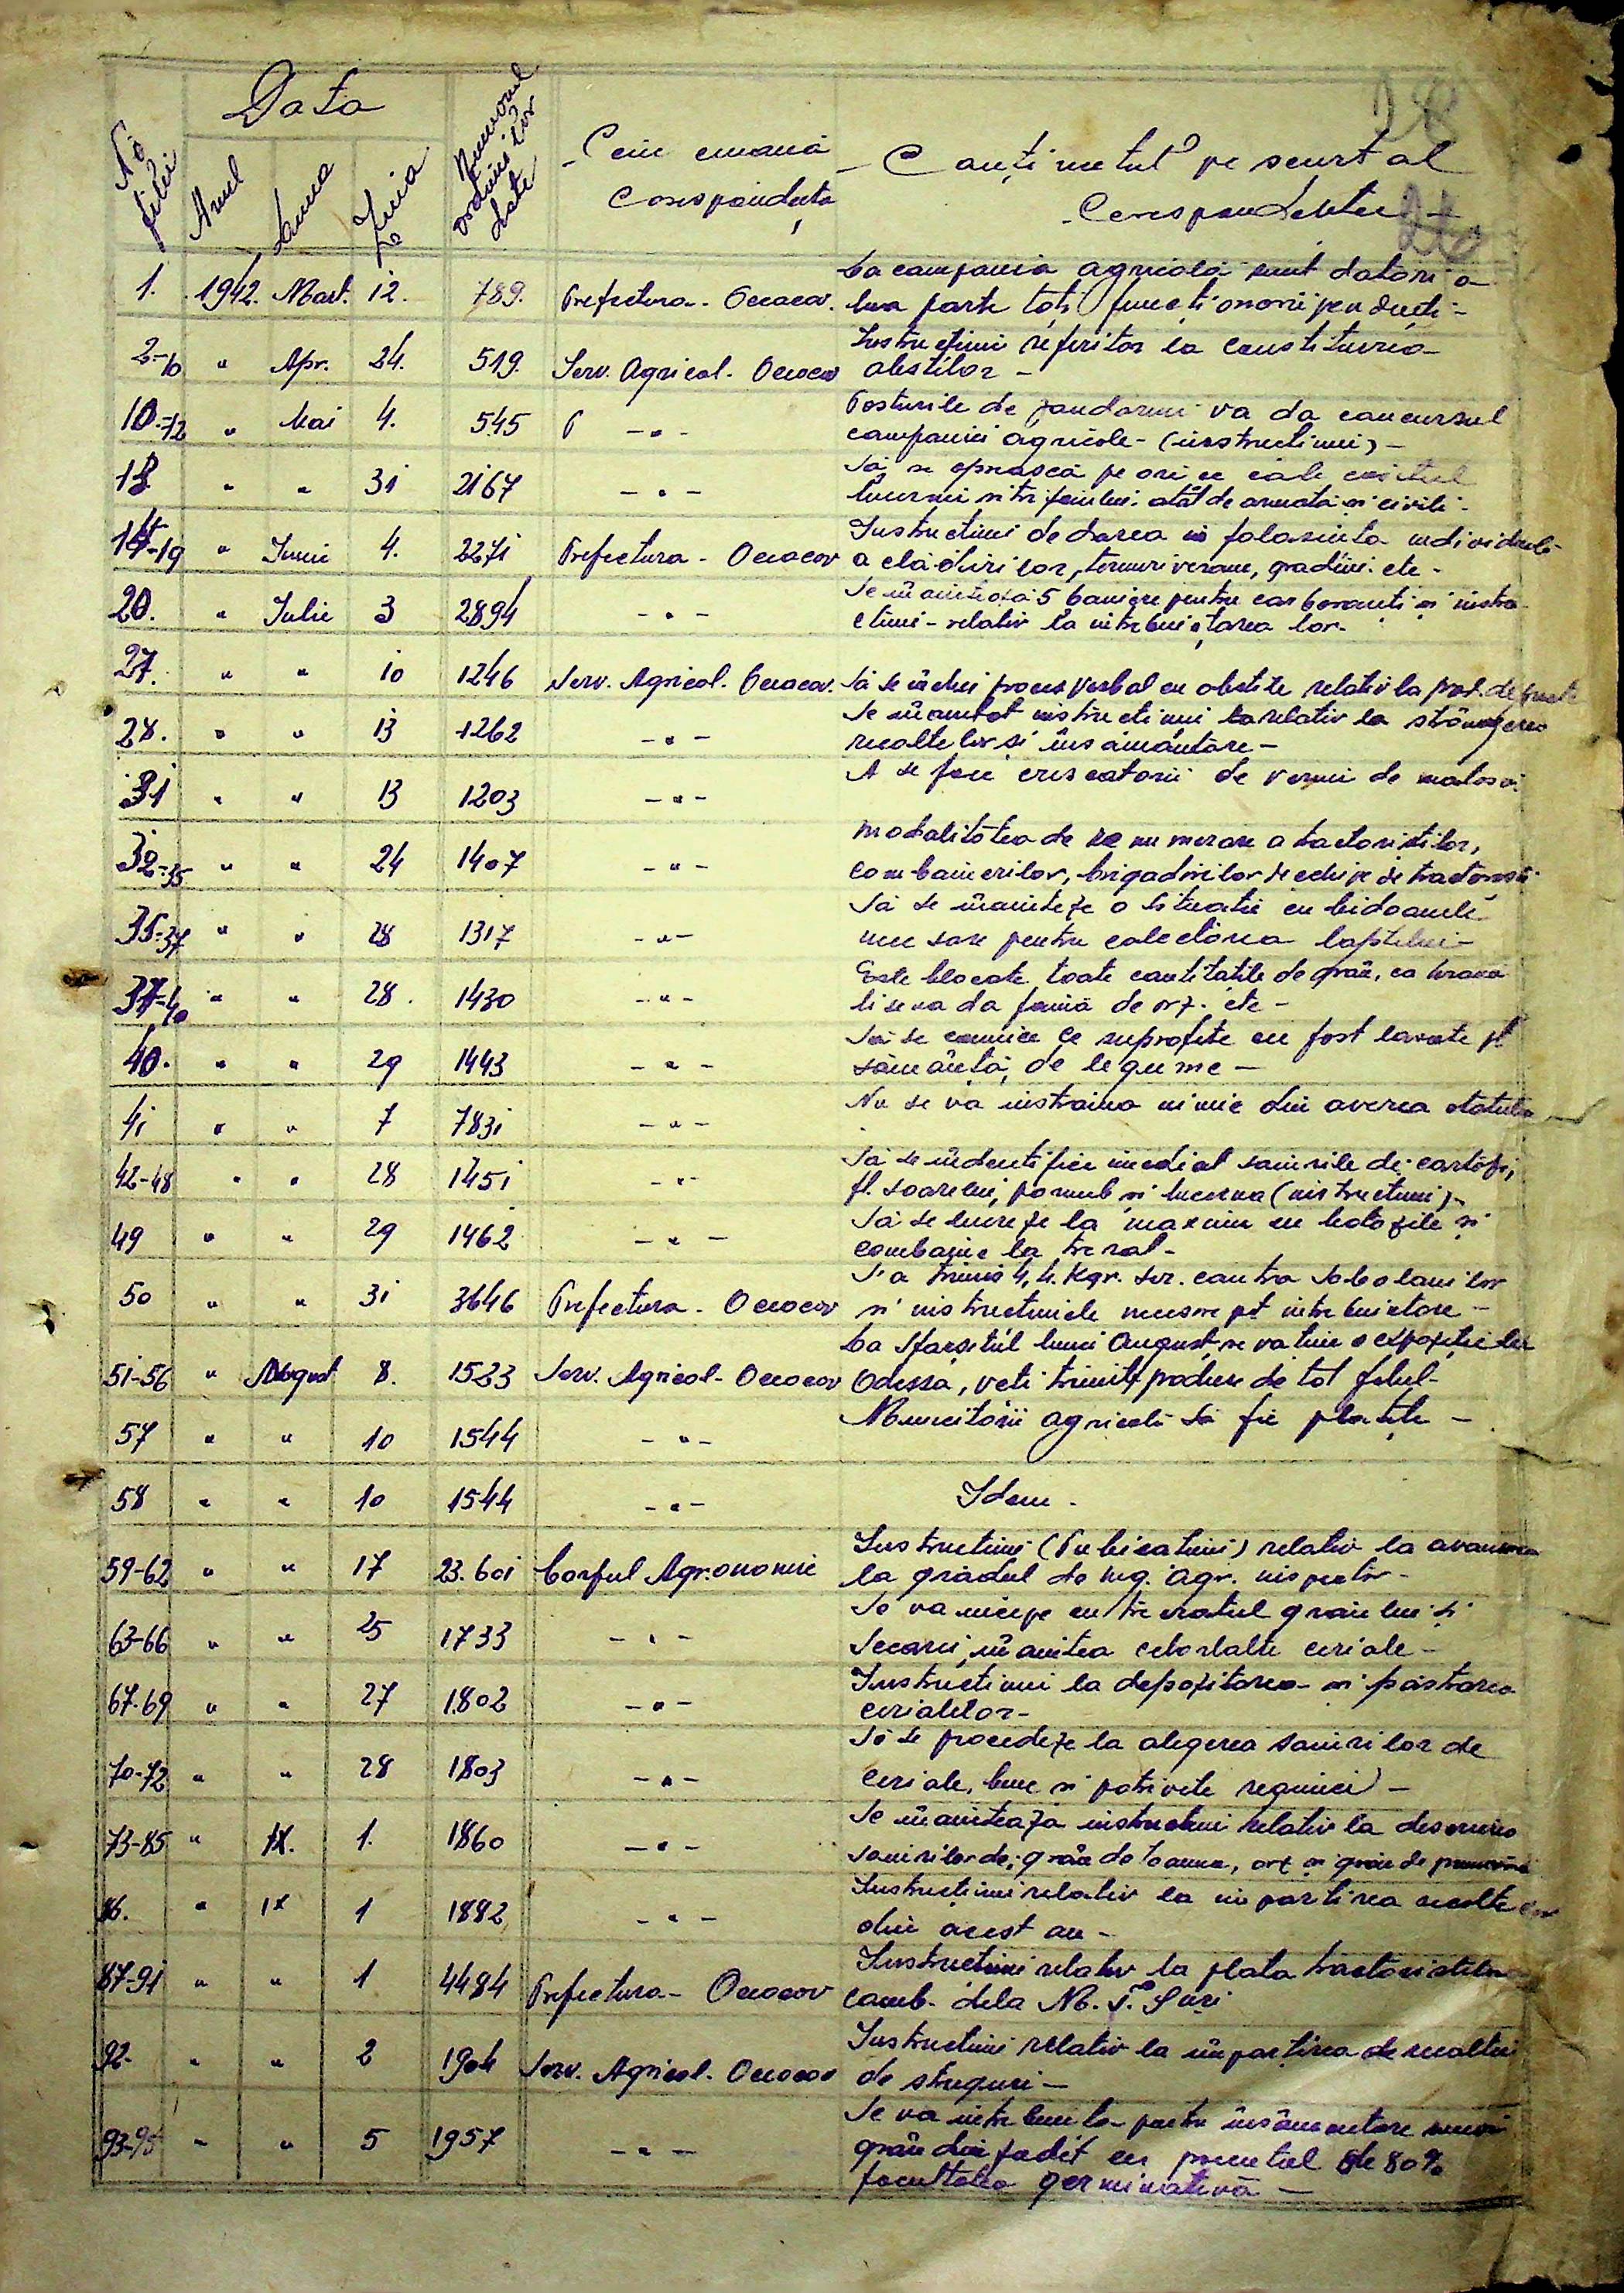 Data
No filei Anul Luna Ziua Numărul ordinului
Cine emană
Corespondența
Conținutul pe scurt al
Corespondenței
1. 1942. Mart. 12. 789. Prefectura - Oceacov. La campania agricolă sunt datori a
lua parte toți funcționarii
2-10 " Apr. 24. 519. Serv. Agricol. Oceacov Instrucțiuni referitor la constituirea
obștilor -
10-12 " Mai 4. 545 - " - Posturile de jandarmi va da concursul
campaniei agricole - (instrucțiuni) -
13 " " 31 2167 - " - Să se oprească pe orice cale cositul
lucernei atât de armată și civili -
14-19 " Iunie 4. 2271 Prefectura - Oceacov Instrucțiuni de darea în folosința
a clădirilor, terenuri virane, grădini etc -
20. " Iulie 3 2894 - " - 5 pentru carboranți și instru-
cțiuni - relativ la lor -
27. " " 10 1246 Serv. Agricol. Oceacov. Să se închei proces verbal cu obștile relativ la
28. " " 13 1262 - " - Se instrucțiuni relativ la strângerea
recoltelor și însămânțare -
31 " " 13 1203 - " - A se face crescătorii de vermi de mătasă
32-35 " " 24 1407 - " - Modalitatea de a tractoriștilor,
combainerilor, brigadirilor de echipe de tractoriști
35-37 " " 28 1317 - " - Să se înainteze o situație cu bidoanele
pentru colectarea laptelui -
37-40 " " 28. 1430 - " - Este blocate toate cantitățile de grâu, ca hrană
li se va da făină de orz. etc -
40. " " 29 1443 - " - Să se comunice ce suprafețe au fost
sămânță de legume -
41 " " 7 7831 - " - Nu se va instraina nimic din averea statului
42-48 " " 28 1451 - " - Să se identifice imediat soiurile de cartofi,
fl. soarelui, porumb și lucerna (instrucțiuni) -
49 " " 29 1462 - " - Să se lucreze la maxim cu batozele și
combaine la treerat -
50 " " 31 3646 Prefectura - Oceacov S'a trimis 4,4. Kgr. contra sobolanilor
și instrucțiunile
51-56 " August 8. 1523 Serv. Agricol - Oceacov La sfârșitul lunii August se va ține o expoziție la
Odessa, veti trimite produse de tot felul -
57 " " 10 1544 - " - Muncitorii agricoli să fie plătiți -
58 " " 10 1544 - " - Idem -
59-62 " " 17 23.601 Corpul Agronomic Instrucțiuni (Publicațiuni) relativ la avansarea
la gradul de ing. agr. inspector -
63-66 " " 25 1733 - " - Se va incepe cu treeratul grâului și
secarei, înaintea celorlalte ceriale -
67-69 " " 27 1802 - " - Instrucțiuni la depozitarea și păstrarea
cerialelor -
70-72 " " 28 1803 - " - Să se procedeze la alegerea soiurilor de
ceriale, bune și potrivite regiunei -
73-85 " IX. 1. 1860 - " - Se înaintează instrucțiuni relativ la descrierea
soiurilor de; grâu de toamna, orz și grâu de primăvară
86. " IX 1 1882 - " - Instrucțiuni relativ la impartirea recoltelor
din acest an -
87-91 " " 1 4484 Prefectura - Oceacov Instrucțiuni relativ la plata tractoriștilor
comb. dela M. T. S uri
92- " " 2 1904 Serv. Agricol. Oceacov Instrucțiuni relativ la împărțirea recoltei
de struguri -
93-95 " " 5 1957 - " - Se va pentru însămânțare
grâu cu procentul de 80%
facultatea germinativă -